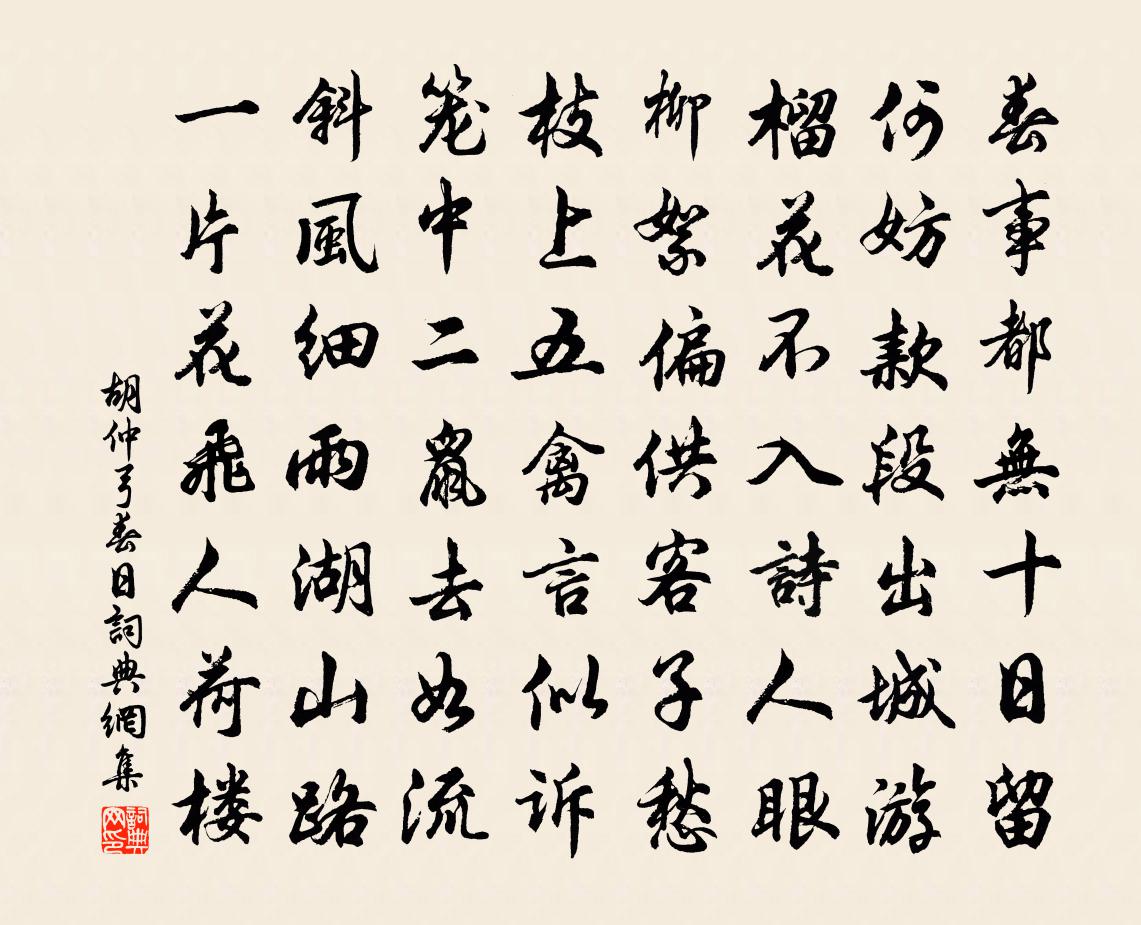 春事都無十日留
何妨款段出城游
榴花不入詩人眼
柳絮偏供客子愁
枝上五禽言似訴
笼中二鼠去如流
斜風細雨湖山路
一片花飛人荷楼
胡仲弓春日詞典網集
詞典网印